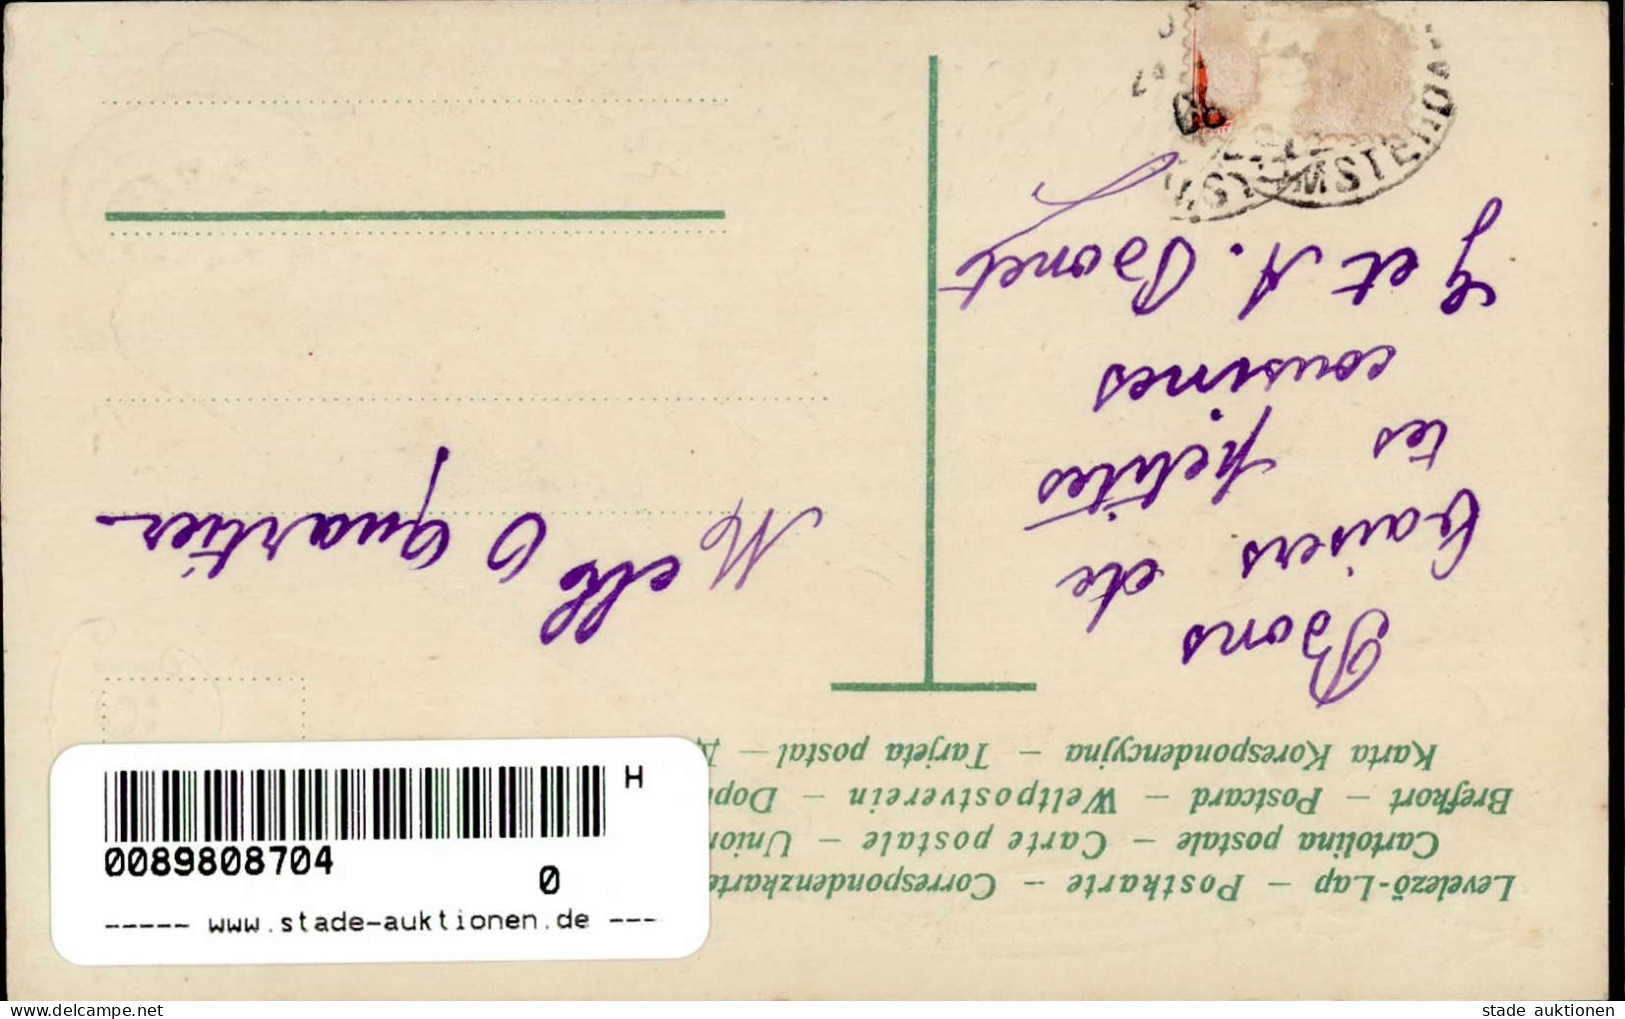 Levelező-Lap – Postkarte – Correspondenzkarte
Cartolina postale – Carte postale – Union
Brefkort – Postcard – Weltpostverein – Dopi
Karta Korespondencyjna – Tarjeta postal –
Bons
baisers de
tes petites
cousines
G et A. Bonet
Melle O Quartier
AMSTERDAM
H
0089808704
0
----- www.stade-auktionen.de ---
stade auktionen